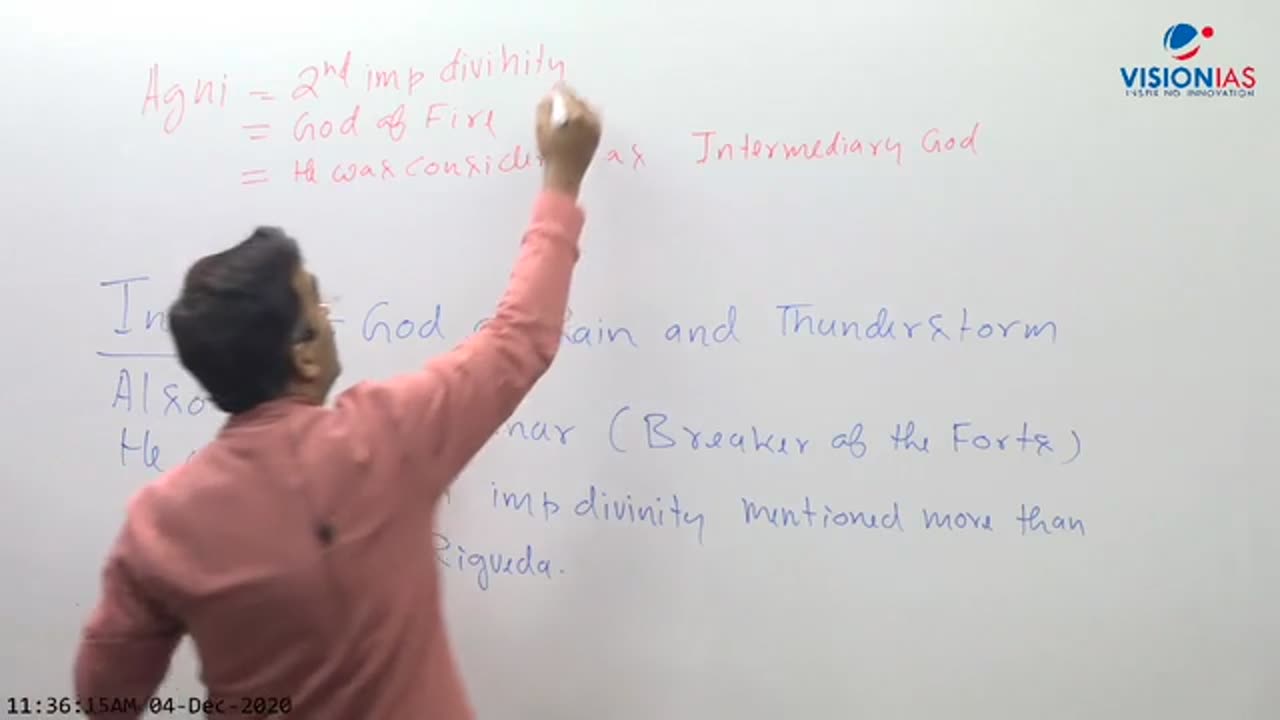 VISIONIAS
INSPIRING INNOVATION
Agni = 2nd imp divinity
= God of Fire
= He was consider as Intermediary God
God Rain and Thunderstorm
Also
He (Breaker of the Forts)
imp divinity mentioned more than
Rigveda.
11:36:15AM 04-Dec-2020